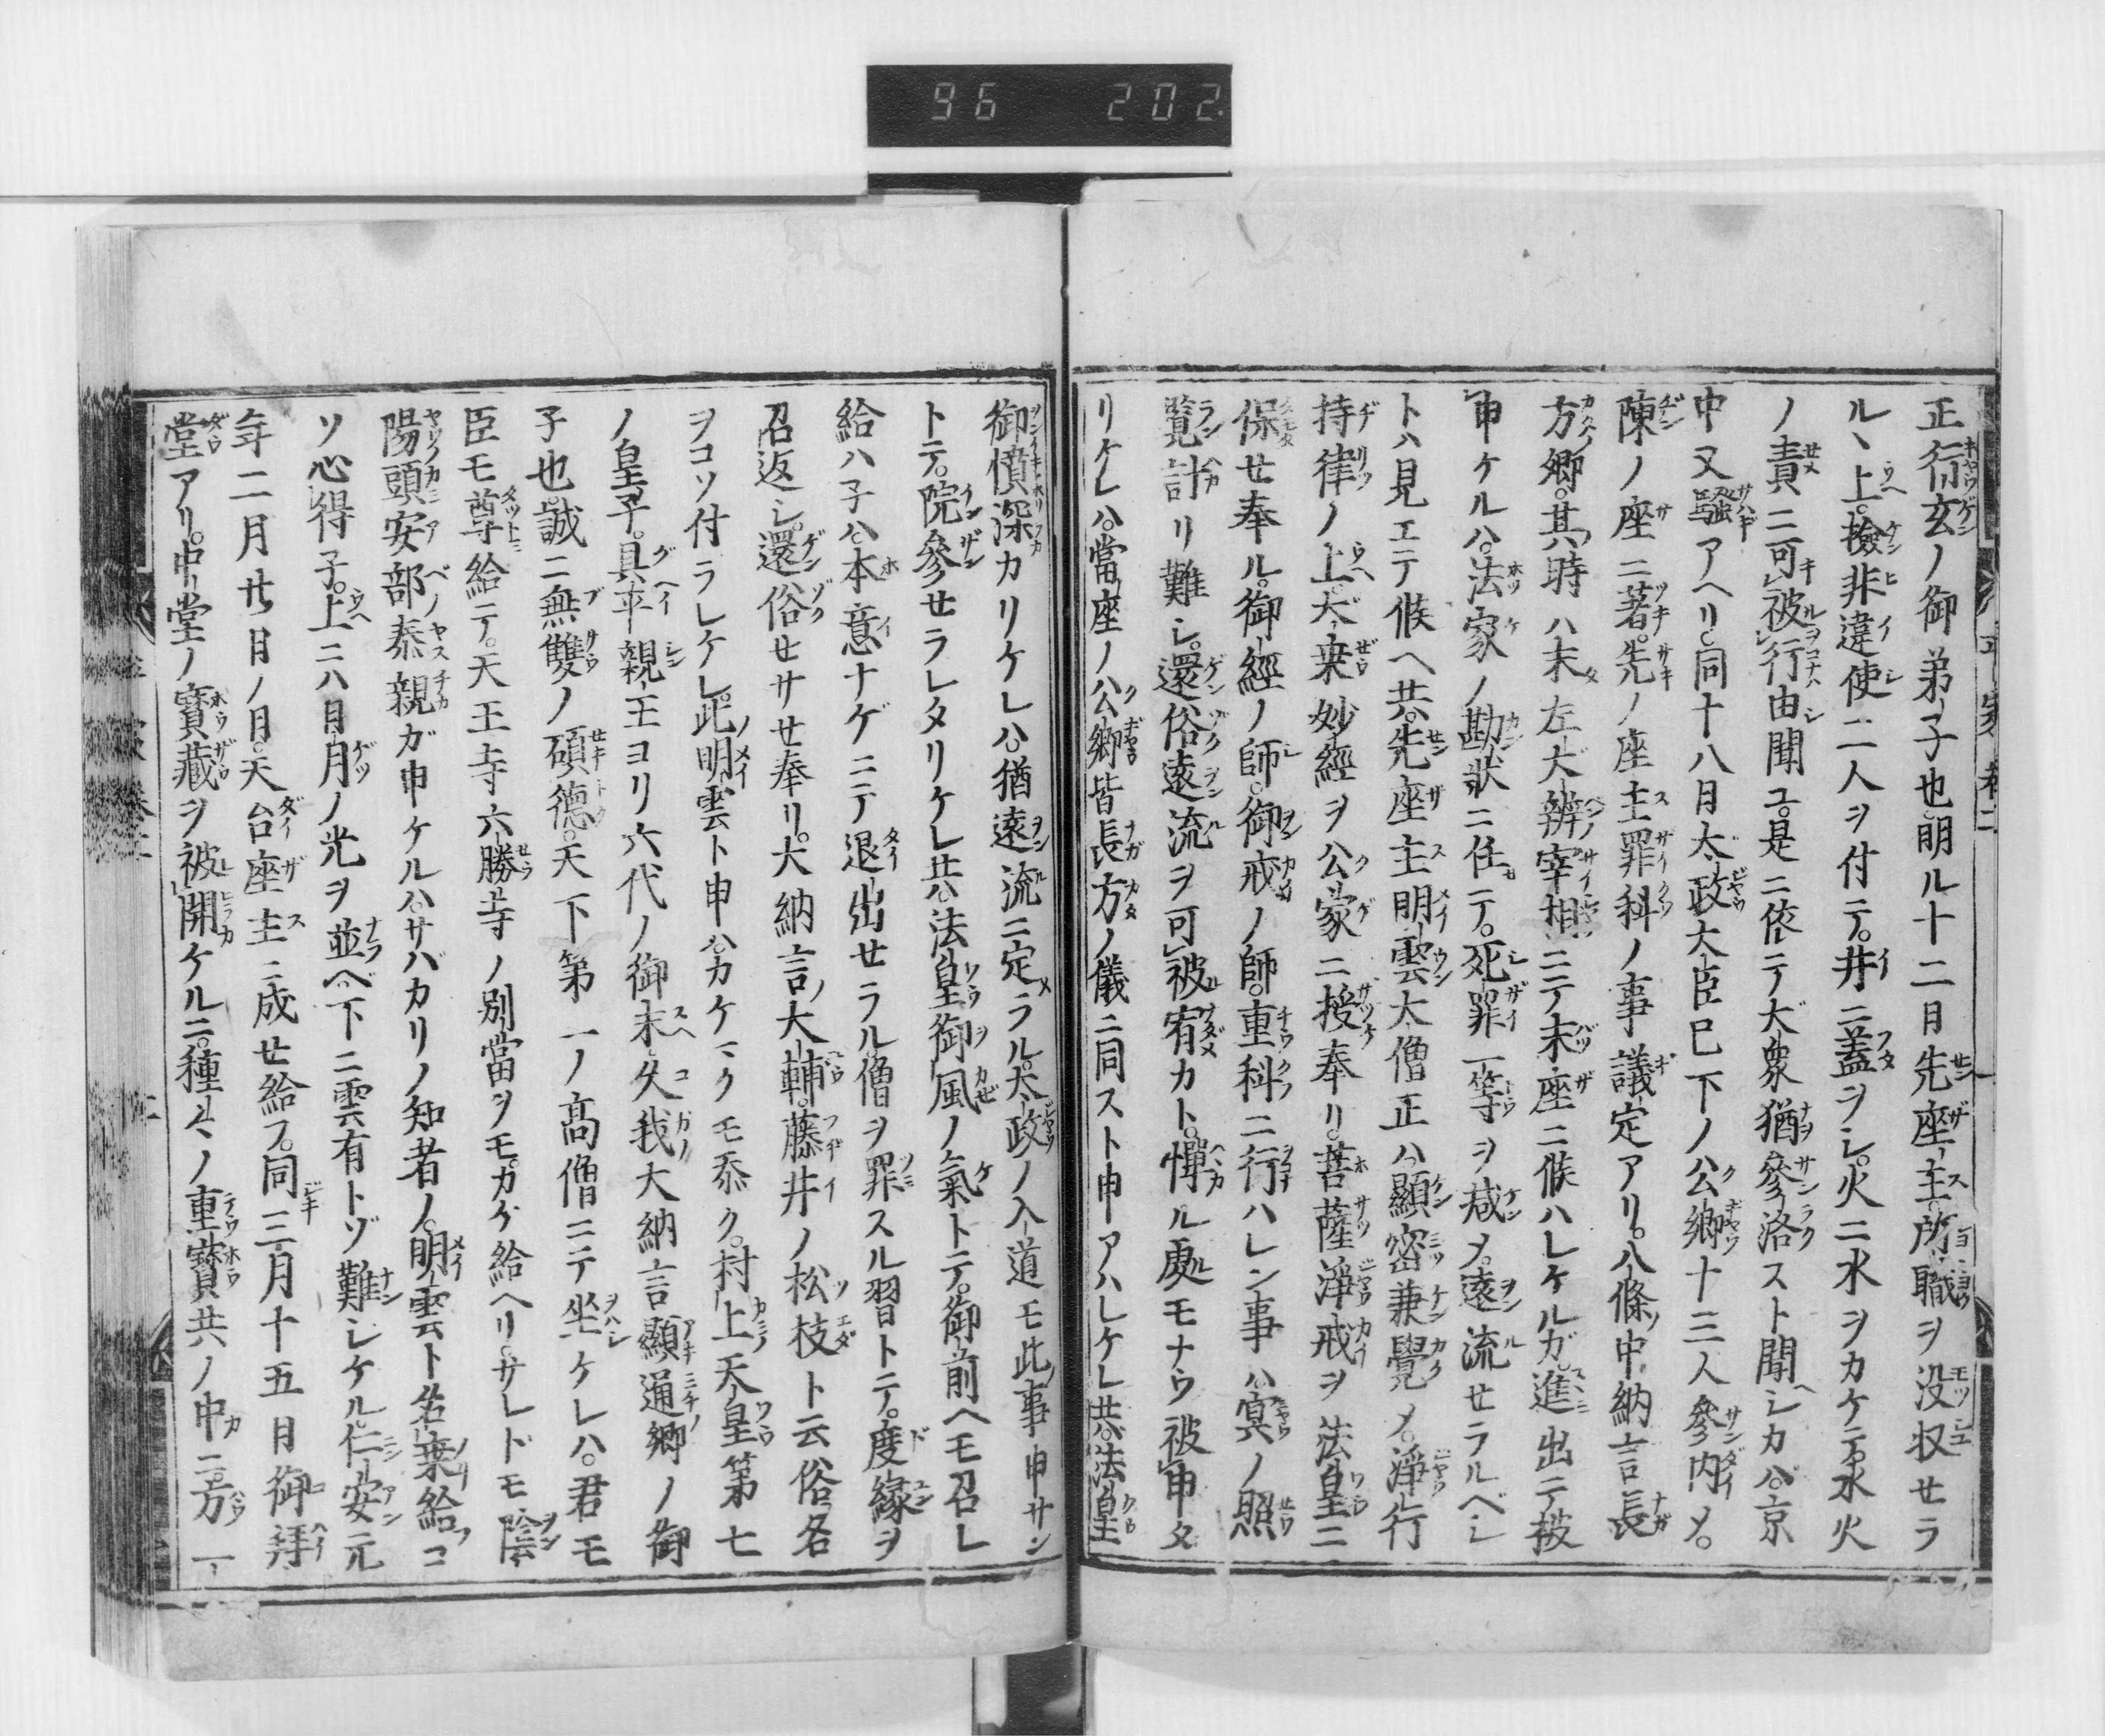 96 202
正行玄ノ御弟子也。明ル十二月先座主。所職ヲ没収せラ
ルヽ上。檢非違使二人ヲ付テ。井ニ蓋ヲシ。火ニ水ヲカケテ。水火
ノ責ニ可被行由聞ユ。是ニ依テ大衆猶參洛スト聞シカバ。京
中又騷アヘリ。同十八日太政大臣已下ノ公卿十三人參内メ。
陳ノ座ニ著。先ノ座主罪科ノ事議定アリ。八條ノ中納言長
方ノ卿。其時ハ未左大辨宰相ニテ末座ニ候ハレケルガ。進出テ被
申ケルハ。法家ノ勘狀ニ任テ。死罪一等ヲ减メ。遠流せラルベシ
トハ見エテ候ヘ共。先座主明雲大僧正ハ顯密兼覺メ。淨行
持律ノ上。大乗妙經ヲ公家ニ授奉リ。菩薩淨戒ヲ法皇ニ
保せ奉ル。御經ノ師。御戒ノ師。重科ニ行ハレン事ハ。冥ノ照
覧計リ難シ。還俗遠流ヲ可被宥カト。憚ル處モナウ被申タ
リケレハ。當座ノ公卿皆長方ノ儀ニ同スト申アハレケレ共。法皇
御憤深カリケレハ。猶遠流ニ定ラル。太政ノ入道モ此事申サン
トテ。院參せラレタリケレ共。法皇御風ノ氣トテ。御前ヘモ召レ
給ハ子ハ。本意ナゲニテ退出せラル。僧ヲ罪スル習トテ。度縁ヲ
召返シ。還俗せサせ奉リ。大納言ノ大輔。藤井ノ松枝ト云俗名
ヲコソ付ラレケレ。此明雲ト申ハ。カケマクモ忝ク。村上ノ天皇第七
ノ皇子。具平親王ヨリ六代ノ御末。久我ノ大納言顯通ノ卿ノ御
子也。誠ニ無雙ノ碩德。天下第一ノ高僧ニテ坐ケレハ。君モ
臣モ尊給テ。天王寺六勝寺ノ別當ヲモ。カケ給ヘリ。サレドモ陰
陽頭安部ノ泰親ガ申ケルハ。サバカリノ知者ノ。明雲ト名乗給コ
ソ心得子。上ニハ日月ノ光ヲ並ベ。下ニ雲有トゾ難シケル。仁安元
年二月廿日ノ日。天台座主ニ成せ給フ。同三月十五日御拜
堂アリ。中堂ノ寳藏ヲ被開ケルニ。種々ノ重寳共ノ中ニ。方一